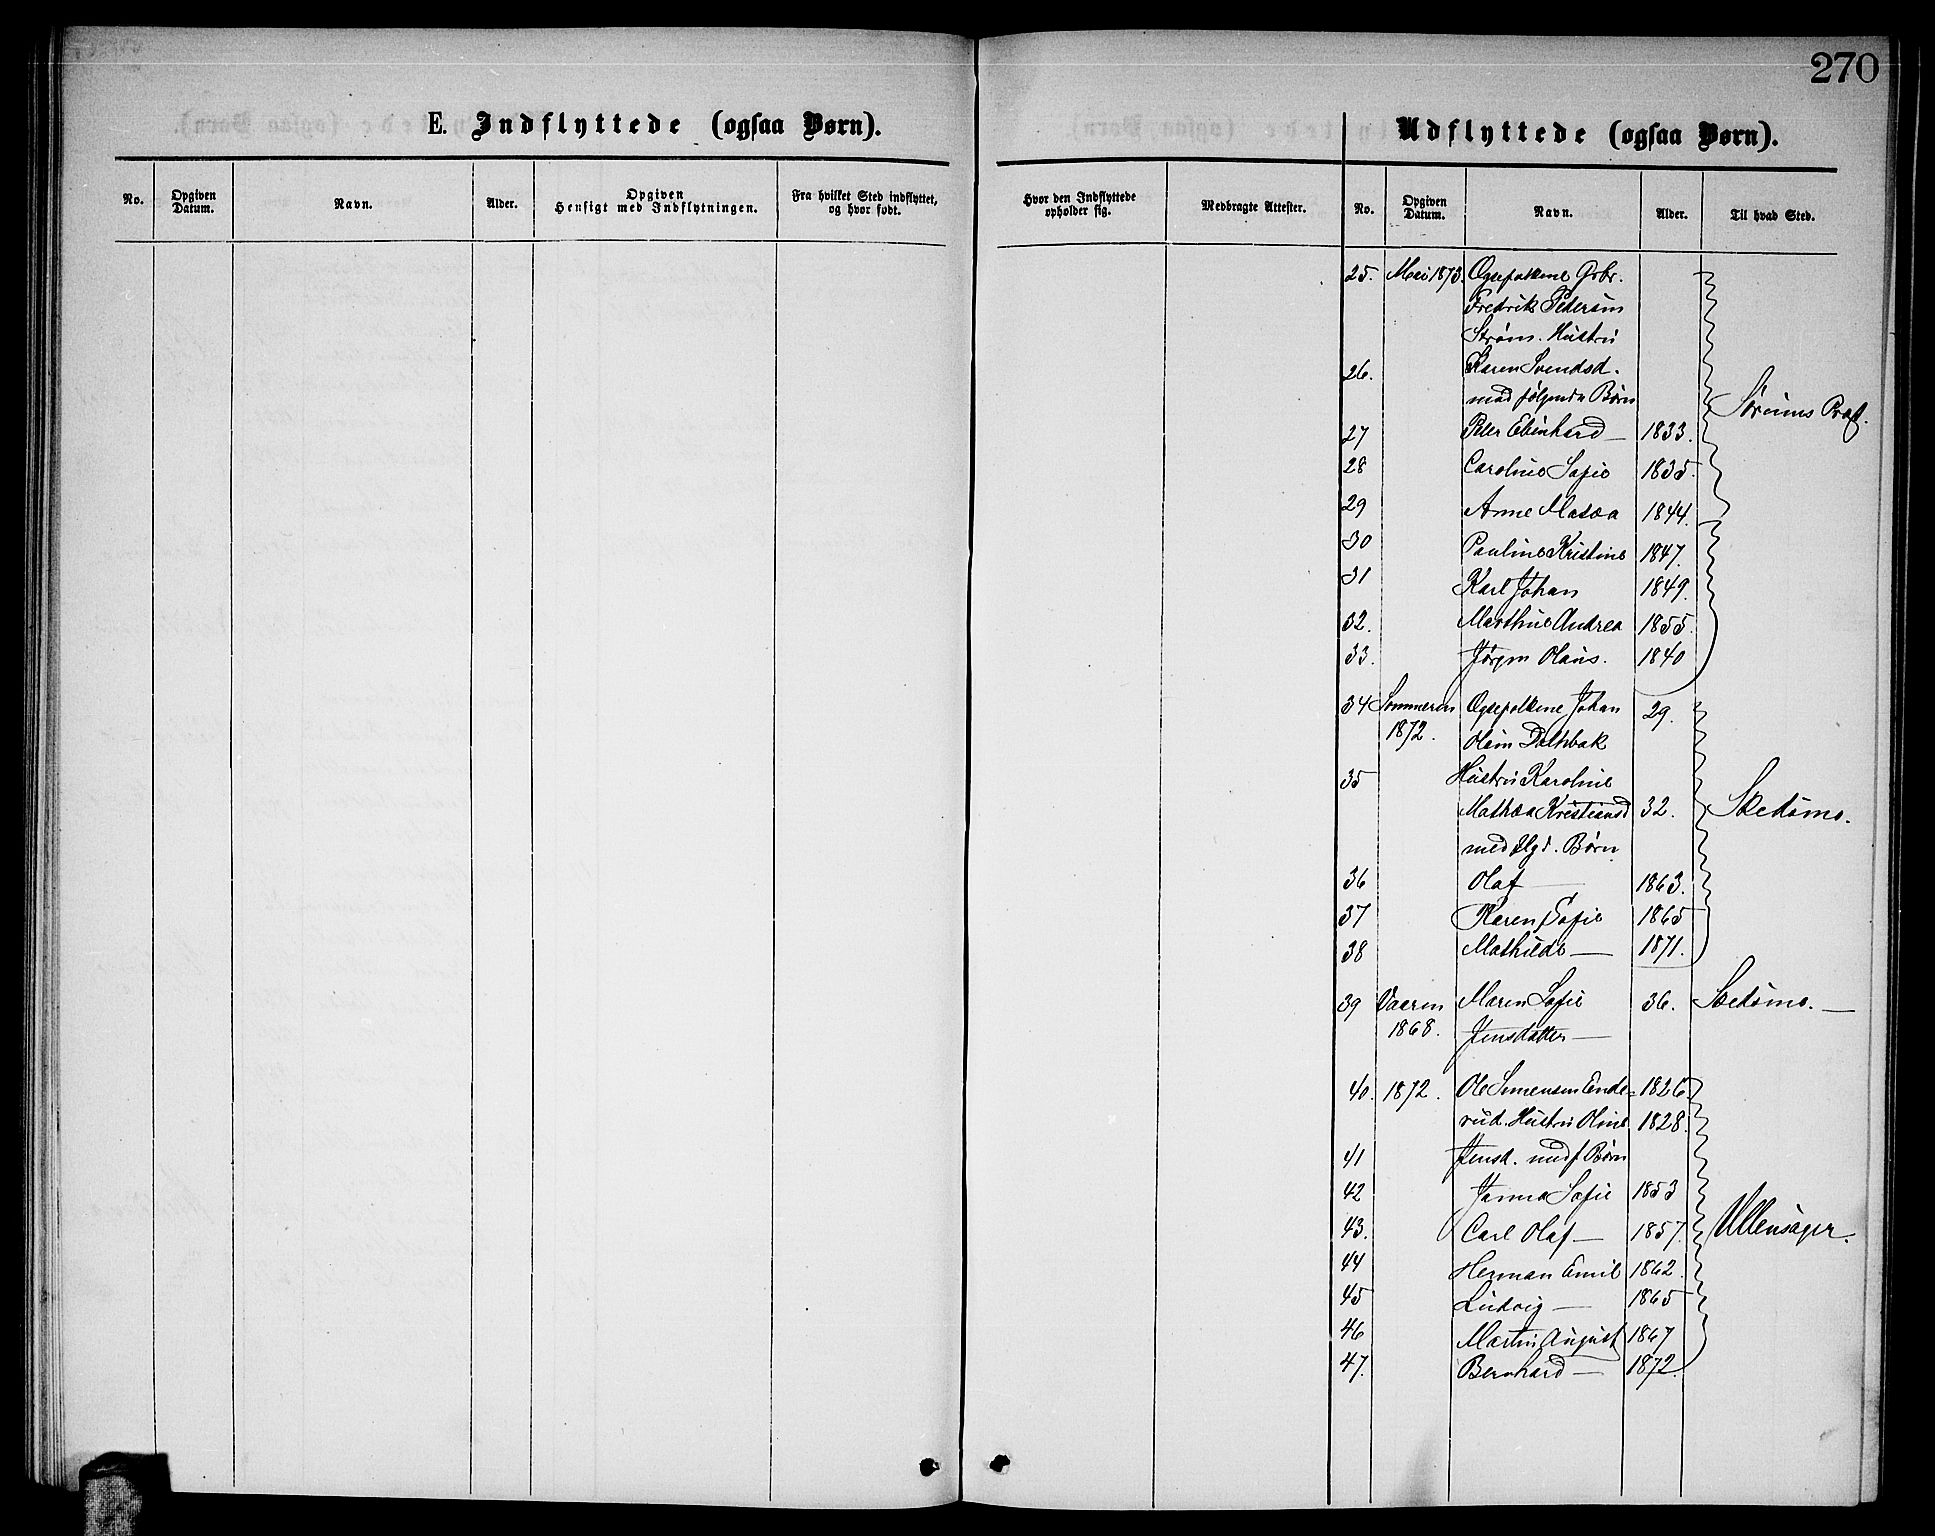 270
E. Indflyttede (ogsaa Børn).
No.
Opgiven Datum.
Navn.
Alder.
Opgiven Hensigt med Indflytningen.
Fra hvilket Sted indflyttet, og hvor født.
Hvor den Indflyttede opholder sig.
Medbragte Attester.
Udflyttede (ogsaa Børn).
No.
Opgiven Datum.
Navn.
Alder.
Til hvad Sted.
25. Mai 1873. Ægtefolkene Grbr.
Fredrik Petersøn
Strøm. Hustru
26. Karen Svendsd.
med følgende Børn
Sørums Præst.
27 Peter Edinhard — 1833.
28 Caroline Sofie 1835.
29 Anne Matea 1844.
30 Pauline Kristine 1847.
31 Karl Johan 1849.
32. Marthine Andrea 1855.
33. Jørgen Olaus. 1840
34 Sommeren Ægtefolkene Johan 29.
1872. Olsøn Dalhbak
35 Hustru Karoline
Mathea Kristiansd 32. Skedsmo.
med flgd. Børn
36 Olaf — 1863.
37 Karen Sofie 1865
38 Mathilde — 1871.
39 Vaaren Maren Sofie 36. Skedsmo. —
1868. Jensdatter —
40. 1872. Ole Simensen Ende- 1826
rud. Hustru Oline 1828.
41 Jensd. med f Børn
42 Janna Sofie 1853
43. Carl Olaf — 1857. Ullensager.
44 Herman Emil 1862.
45 Ludvig — 1865
46 Martin August 1867
47. Bernhard — 1872.